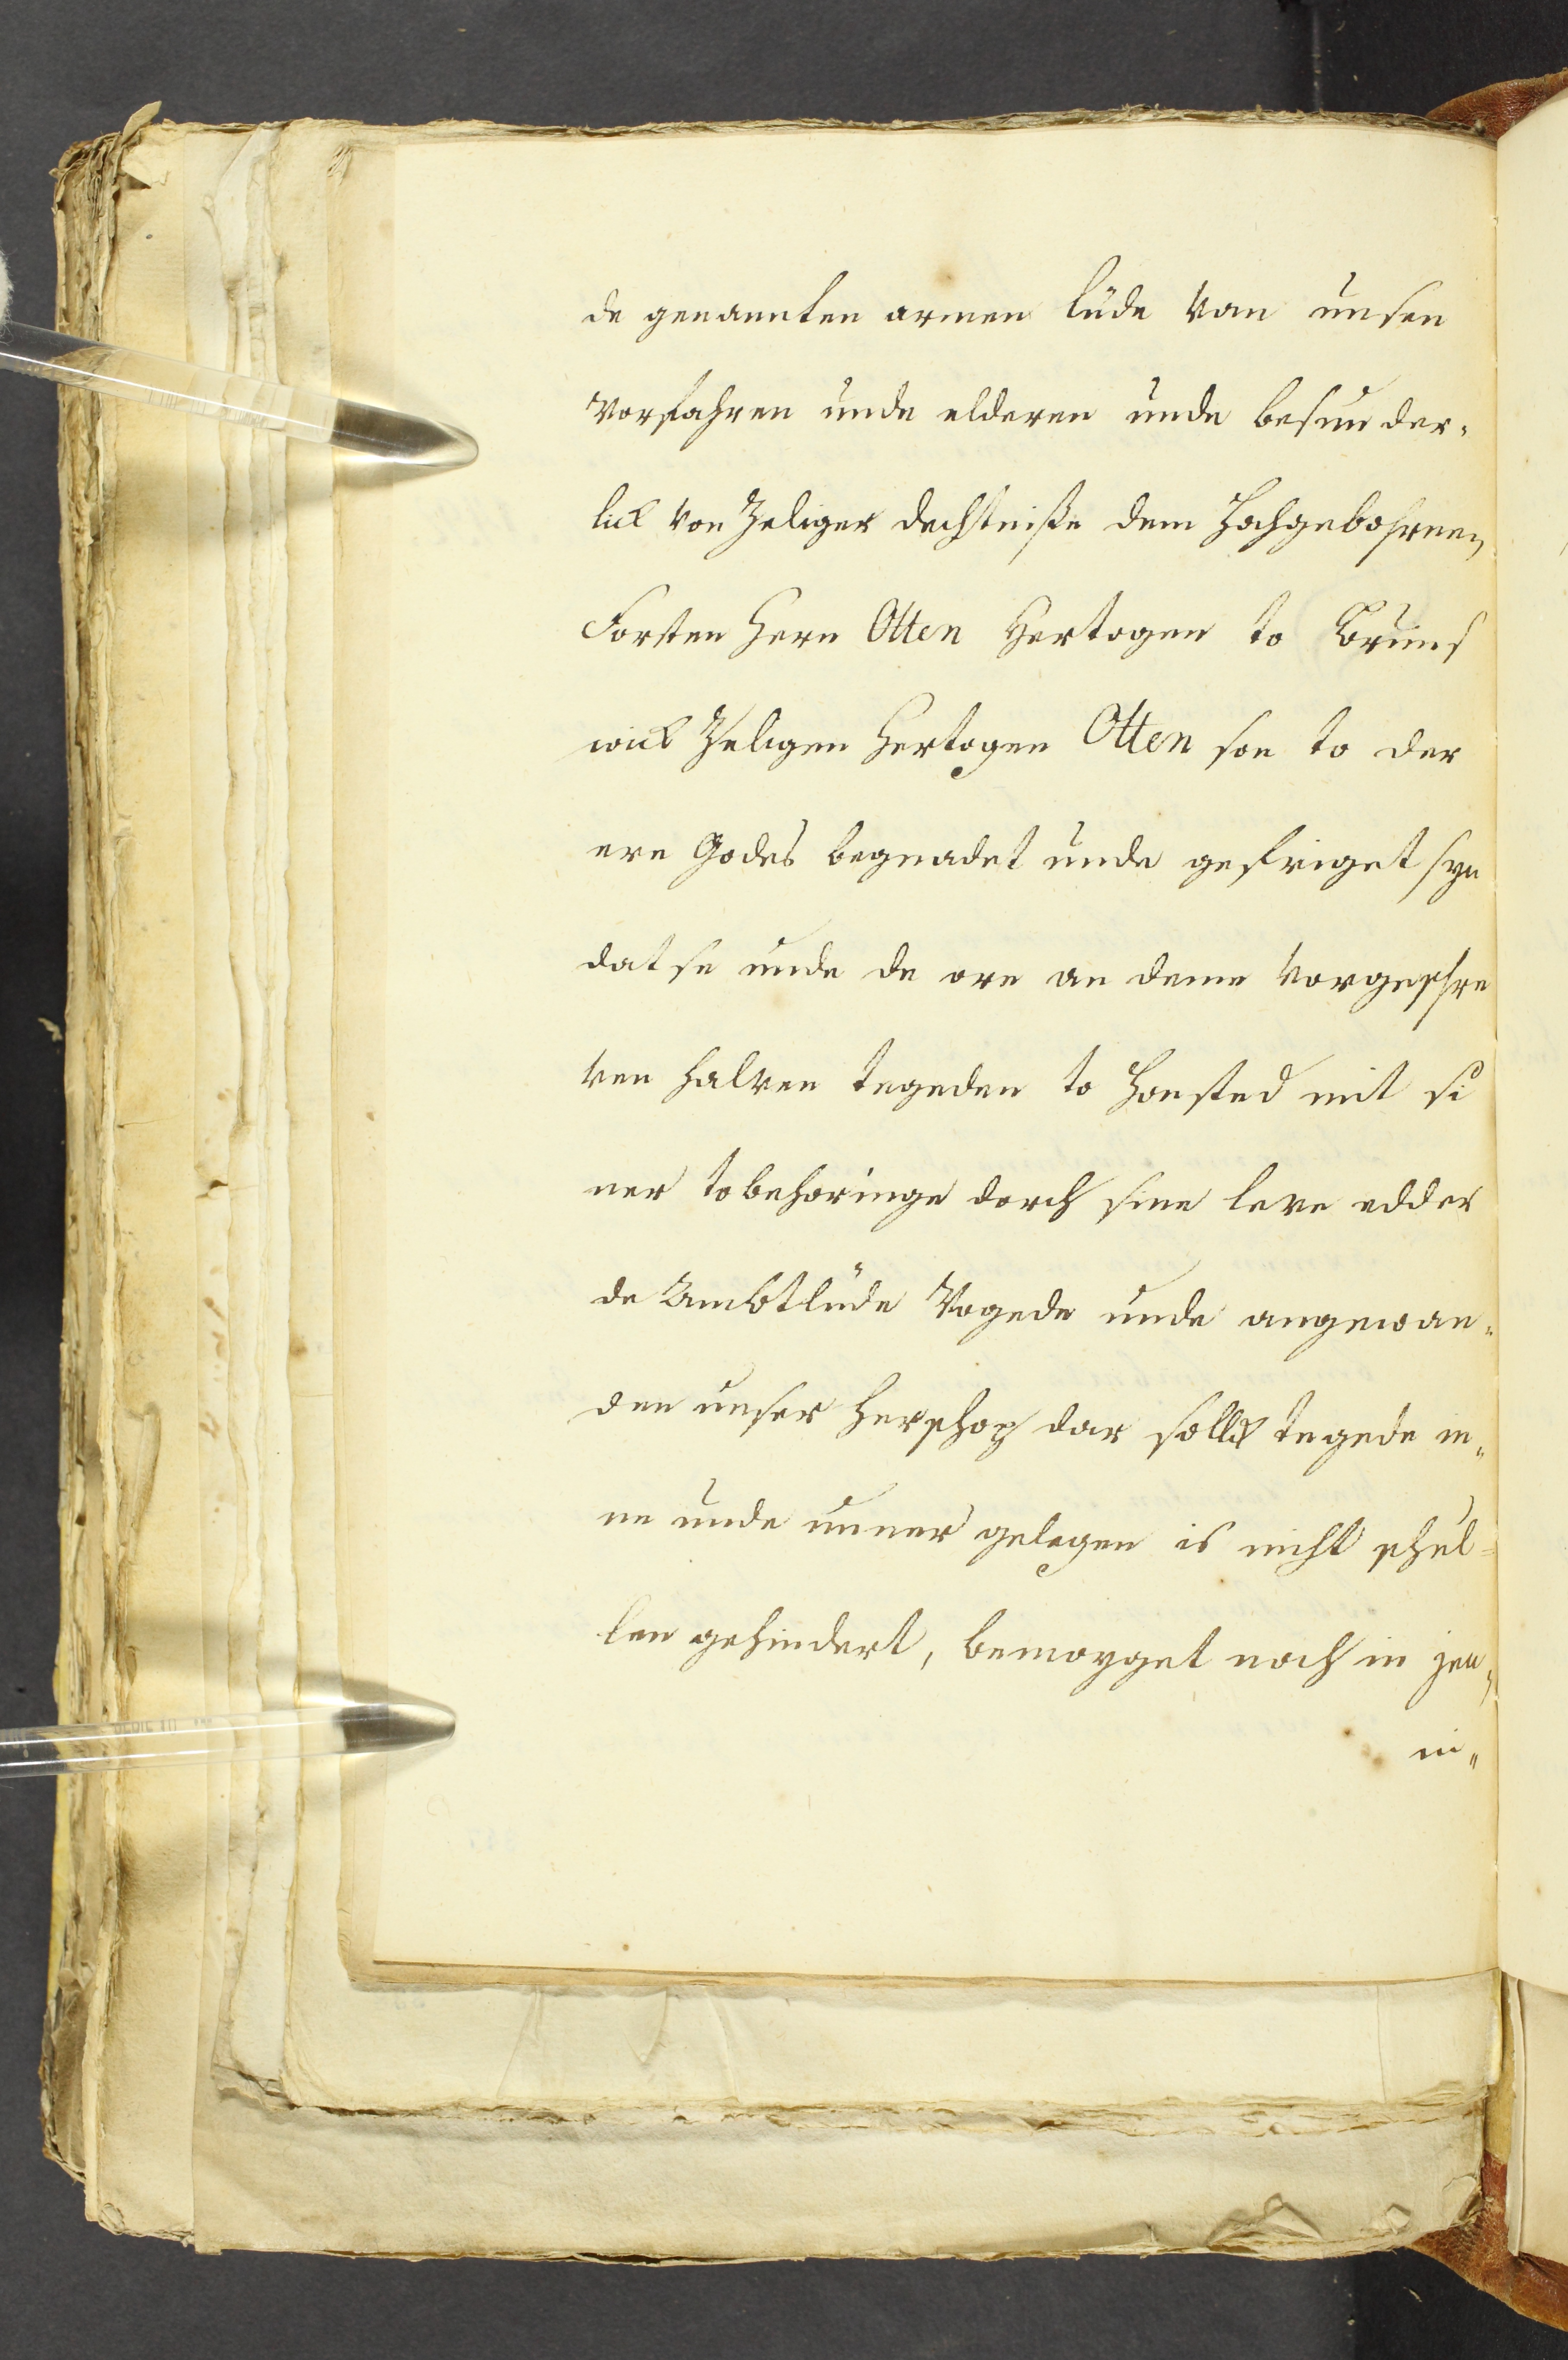 de genannten armen lüde van unsen
Vorfahren unde elderen unde besunder-
lick von Zeliger dechtniße dem Hochgebohrnen
Forsten Hern Otten Hertogen to Bruns
wick Zeligen Hertogen Otten son to der
ere Godes begnadet unde gefriget syn
dat se unde de ore an deme vorgeschre
ven halven tegeden to Honsted mit si
ner tobehoringe dorch sine leve edder
de Ambtlüde Vogede unde angewan-
den unser Herschop dar sollick tegede in-
ne unde unner gelegen is nicht schul-
len gehindert, bemoyget noch in jen-
in-